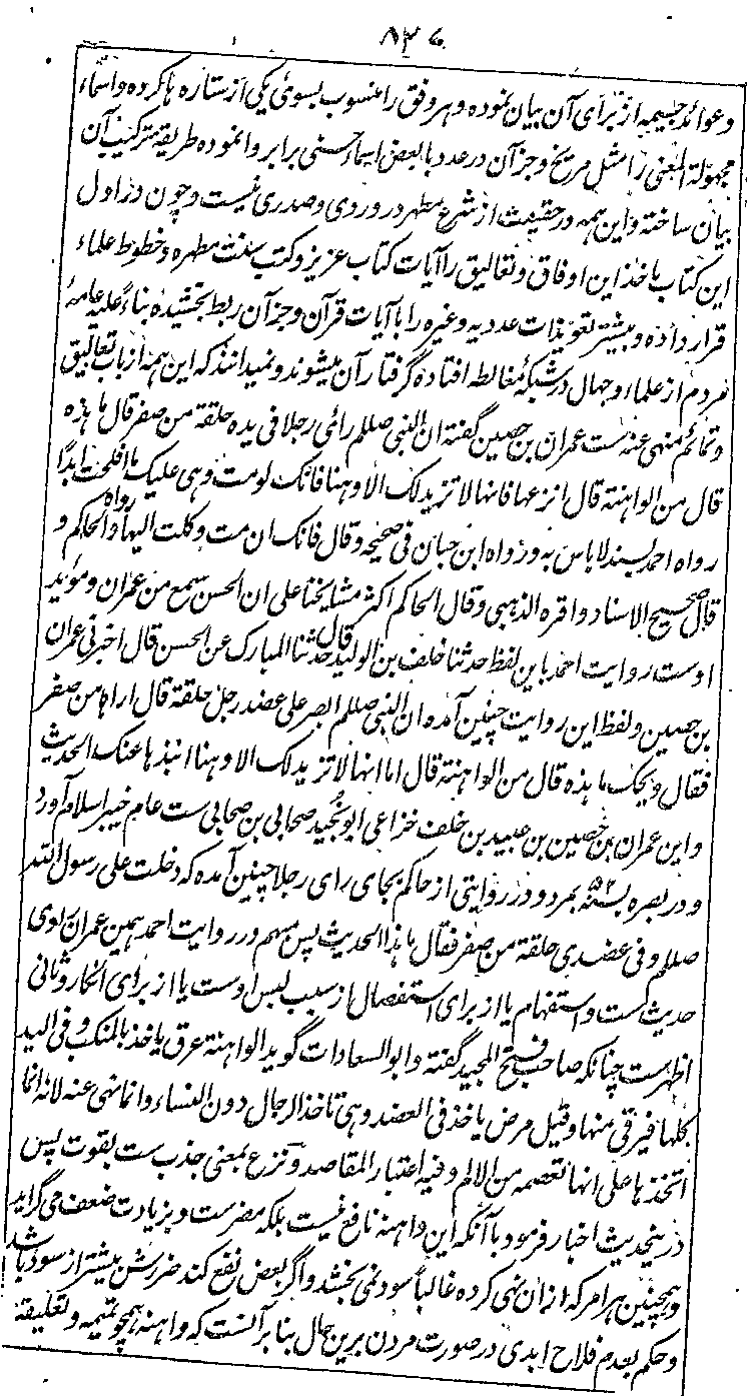 ۸۳۶
وعوائد جسیمه از برای آن بیان نموده و هر وفق را منسوب بسوئی یکی از ستاره ها کرده و اسماء
مجهولة المعنی را مثل مریخ و جز آن در عدد با بعض اسماء حسنی برابر وانموده طریقهٔ ترکیب آن
بیان ساخته و این همه در حقیقت از شرع مطهر در وردی و صدری نیست و چون در اول
این کتاب ماخذ این اوفاق و تعالیق را آیات کتاب عزیز و کتب سنت مطهره و خطوط علماء
قرار داده و بیشتر تعویذات عددیه و غیره را با آیات قرآن و جز آن ربط بخشیده بناءً علیه عامهٔ
مردم از علماء و جهال در شبکهٔ مغالطه افتاده گرفتار آن میشوند و نمیدانند که این همه از باب تعالیق
و تمائم منهی عنه ست عمران بن حصین گفته ان النبی صللم رای رجلا فی یده حلقة من صفر قال ما هذه
قال من الواهنة قال انزعها فانها لا تزیدک الا وهنا فانک لو مت وهی علیک ما افلحت ابدًا
رواه احمد بسند لا باس به و رواه ابن حبان فی صحیحه و قال فانک ان مت وکلت الیها رواه الحاکم و
قال صحیح الاسناد و اقره الذهبی و قال الحاکم اکثر مشایخنا علی ان الحسن سمع من عمران و موید
اوست روایت احمد باین لفظ حدثنا خلف بن الولید قال حدثنا المبارک عن الحسن قال اخبرنی عمران
بن حصین و لفظ این روایت چنین آمده ان النبی صللم ابصر علی عضد رجل حلقة قال اراه من صفر
فقال ویحک ما هذه قال من الواهنة قال اما انها لا تزیدک الا وهنا انبذها عنک الحدیث
و این عمران بن حصین بن عبید بن خلف خزاعی ابو نجید صحابی بن صحابی ست عام خیبر اسلام آورد
و در بصره بسنه ۵۲ بمرد و در روایتی از حاکم بجای رای رجلا چنین آمده که دخلت علی رسول الله
صللم و فی عضدی حلقة من صفر فقال ما هذا الحدیث پس مبهم در روایت احمد همین عمران راوی
حدیث ست و استفهام یا از برای استفصال از سبب لبس اوست یا از برای انکار و ثانی
اظهر ست چنانکه صاحب فتح المجید گفته و ابو السعادات گوید الواهنة عرق یاخذ بالمنکب و فی الید
کلها فیرقی منها و قیل مرض یاخذ فی العضد وهی تاخذ الرجال دون النساء و انما نهی عنه لانه انما
اتخذها علی انها تعصمه من الالم و فیه اعتبار المقاصد و نزع بمعنی جذب ست بقوت پس
درینحدیث اخبار فرمود بآنکه این واهنه نافع نیست بلکه مضر ست و بزیادت ضعف می گراید
و همچنین هر امر که ازان نهی کرده غالباً سود نمی بخشد و اگر بعض نفع کند ضررش بیشتر از سود باشد
و حکم بعدم فلاح ابدی در صورت مردن برین حال بنا بر آنست که واهنه همچو تمیمه و تعلیقهٔ